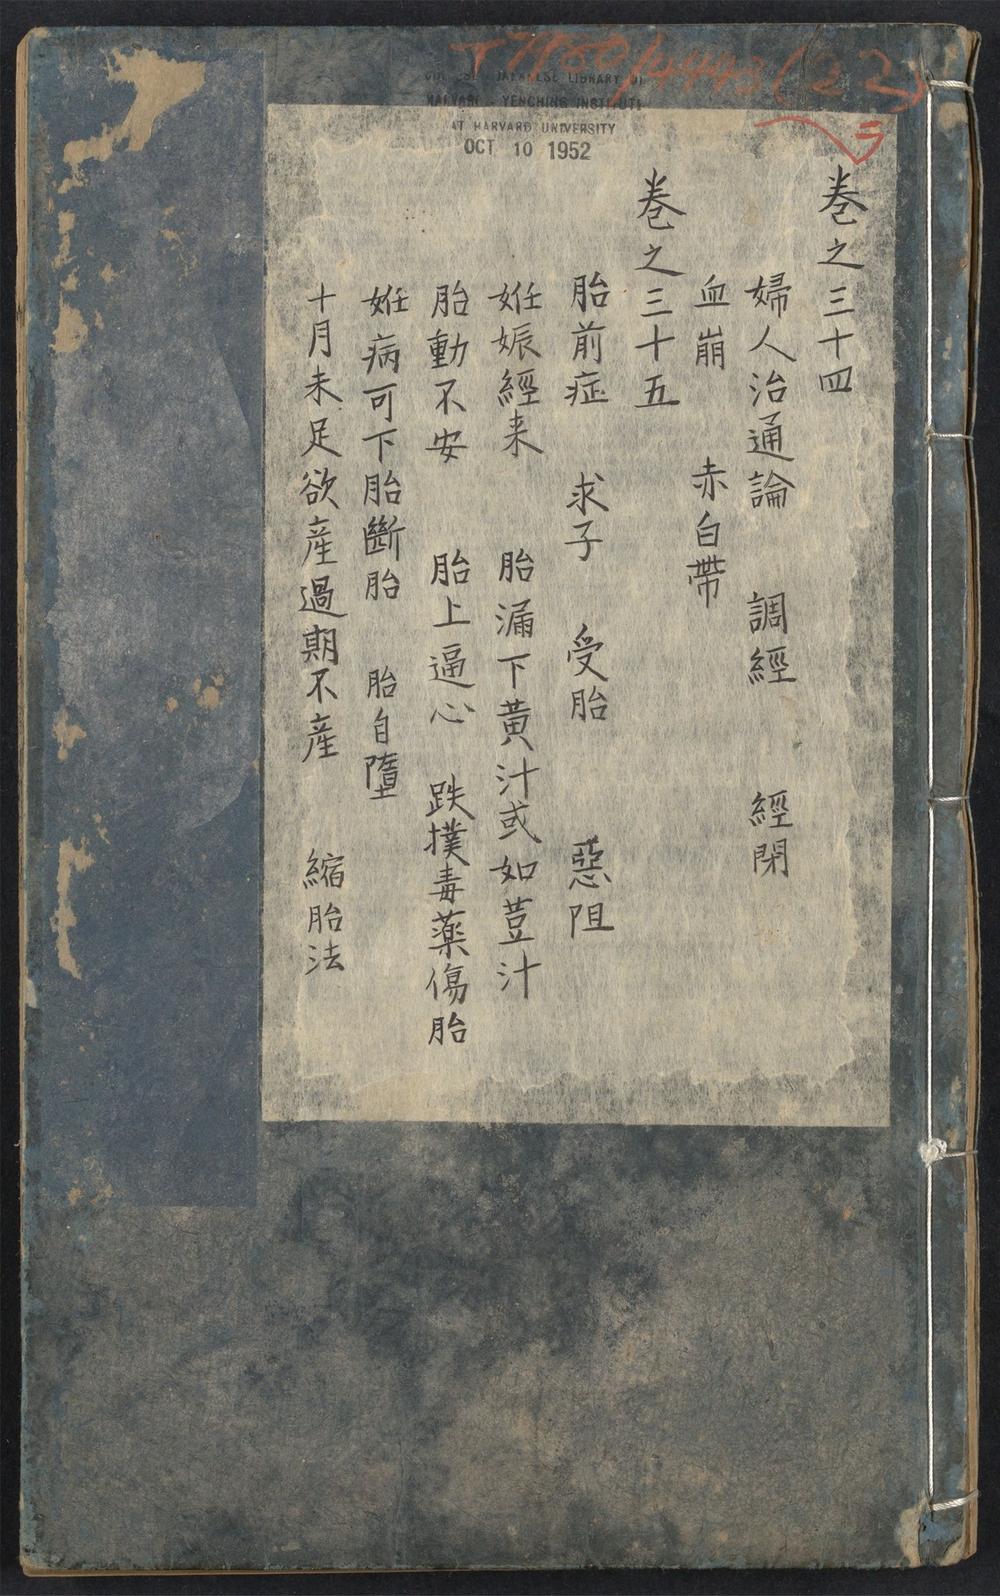 T7980/4443(22)
CHINESE JAPANESE LIBRARY OF
HARVARD - YENCHING INSTITUTE
AT HARVARD UNIVERSITY
OCT 10 1952
卷之三十四
婦人治通論 調經 經閉
血崩 赤白帶
卷之三十五
胎前症 求子 受胎 惡阻
姙娠經来 胎漏下黃汁或如荳汁
胎動不安 胎上逼心 跌撲毒藥傷胎
姙病可下胎斷胎 胎自墮
十月未足欲産過期不産 縮胎法